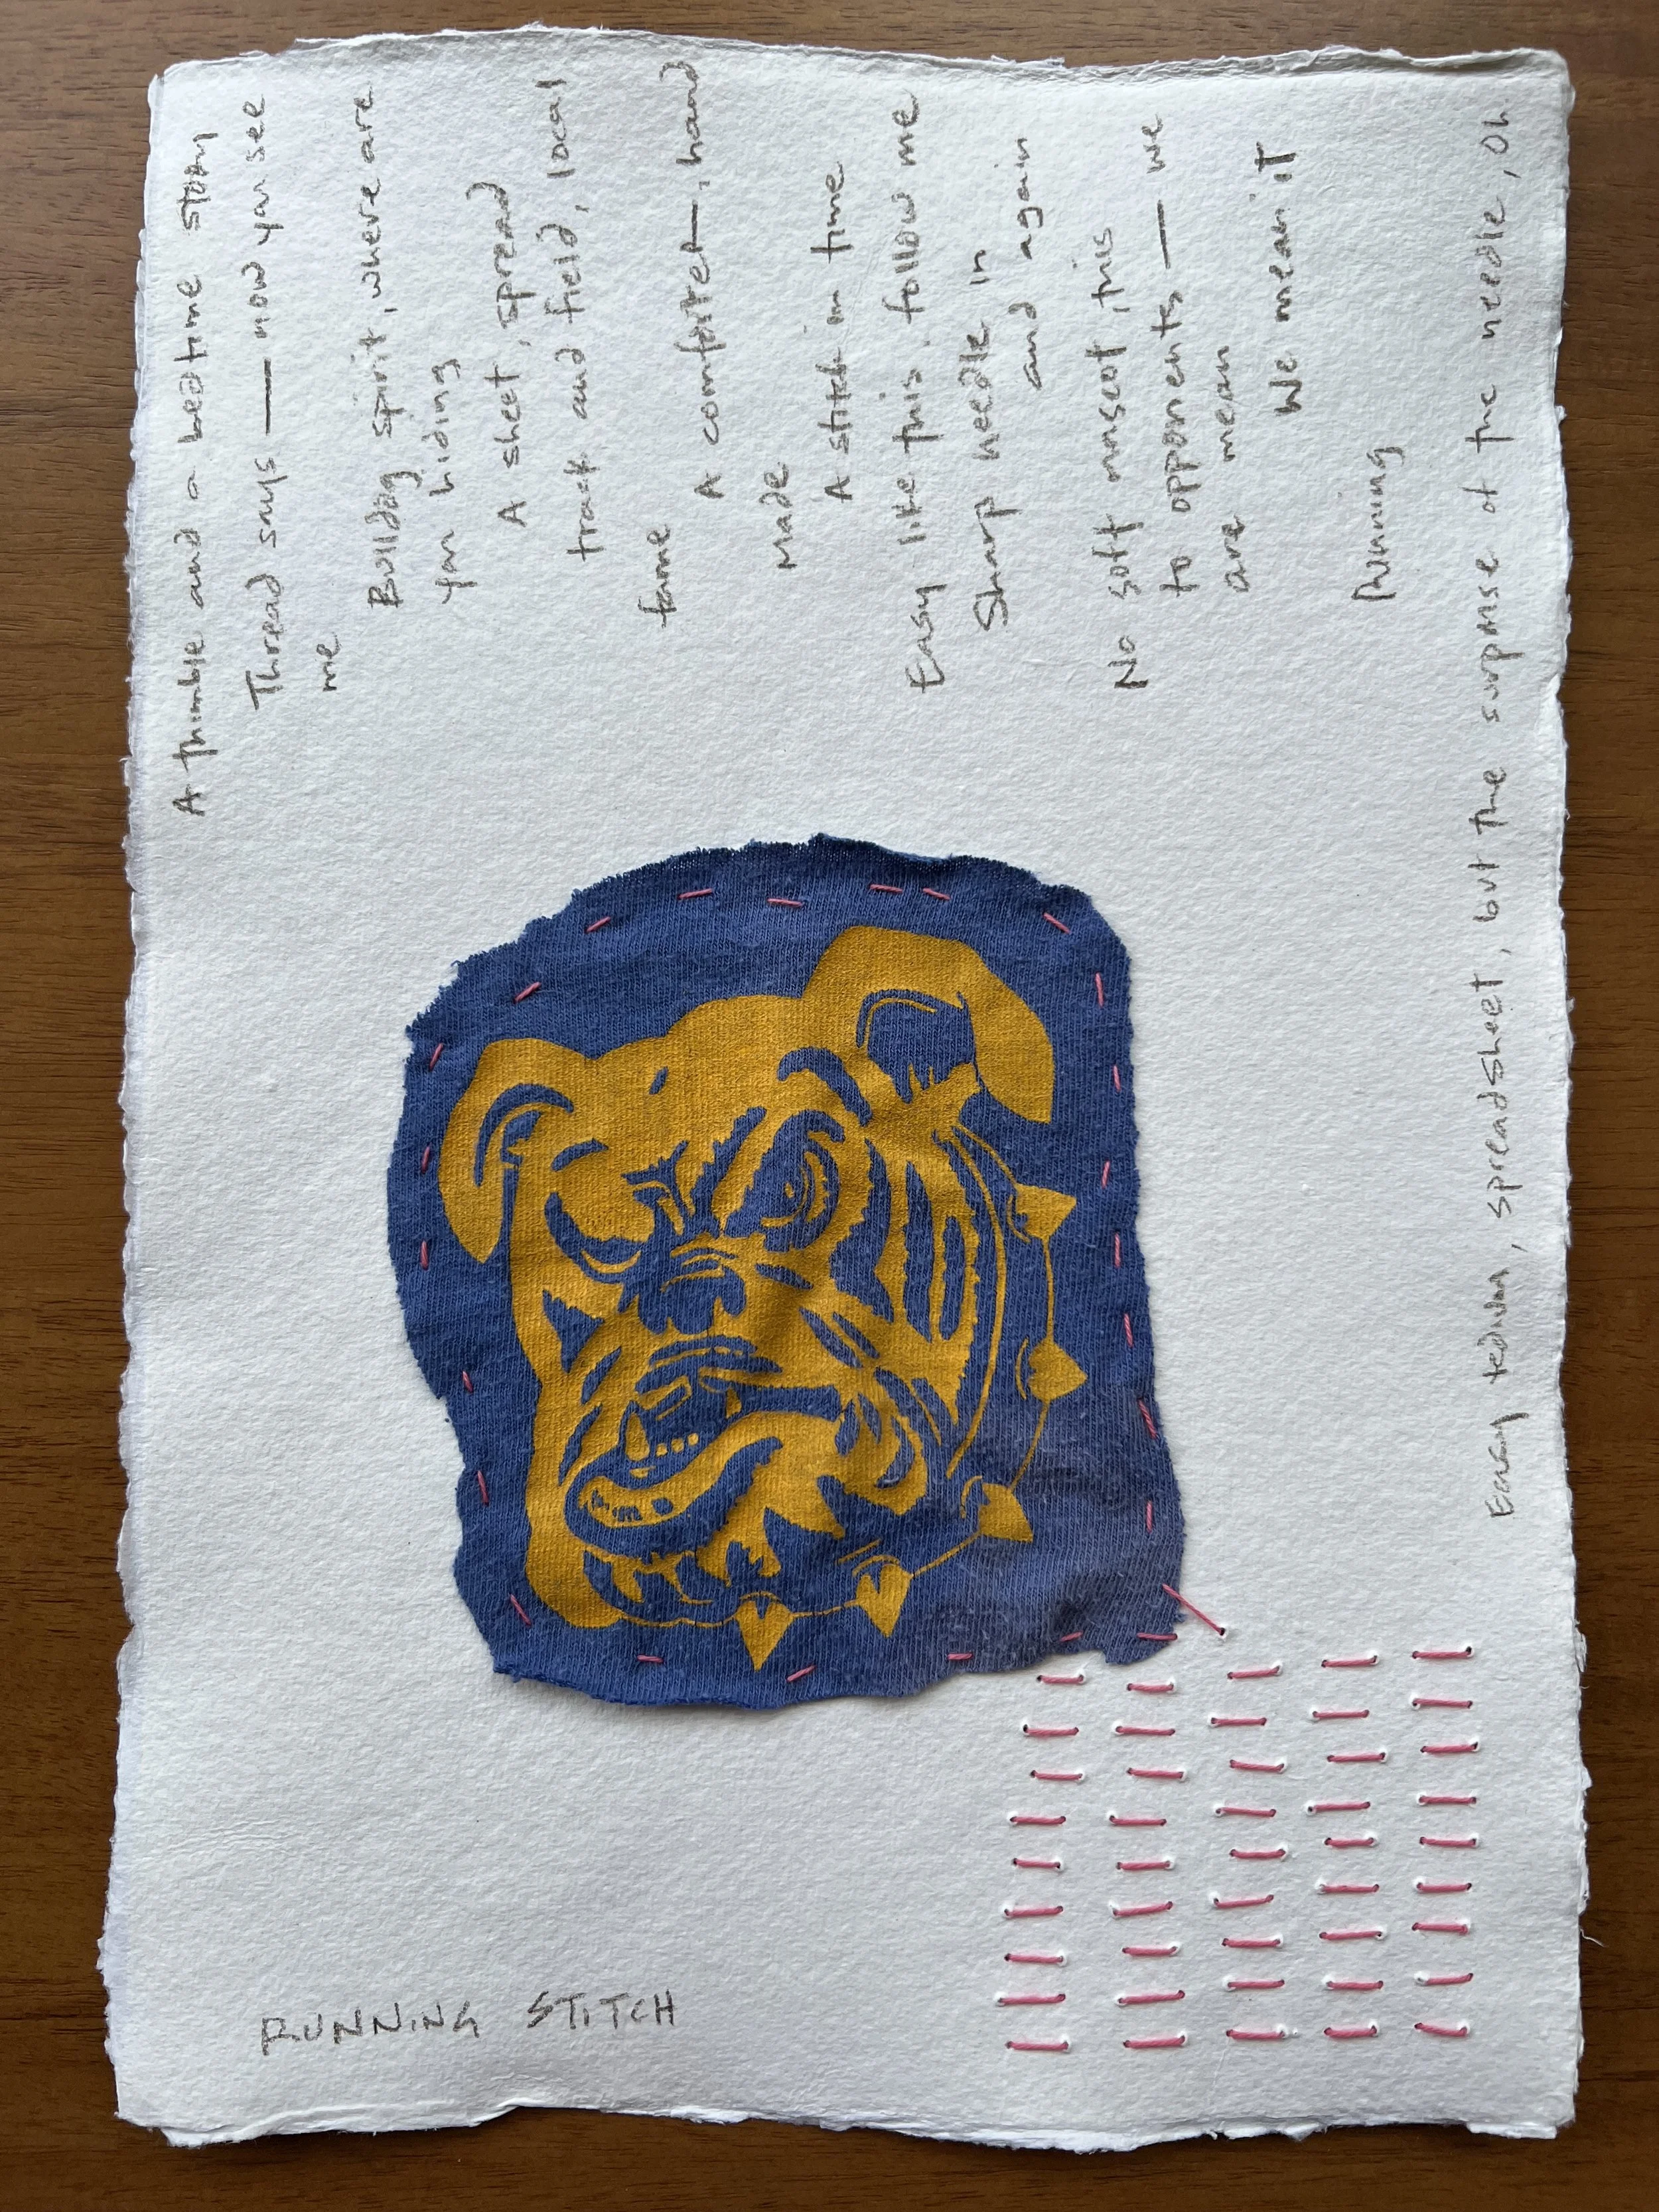 RUNNING STITCH
A thimble and a bedtime story
Thread says — now you see
me
Bulldog spirit, where are
you hiding
A sheet, spread
track and field, local
fame
A comforter, hand
made
A stitch in time
Easy like this. follow me
Sharp needle in
and again
No soft mascot, this
to opponents — we
are mean
We mean it
Running
Easy tedium, spreadsheet, but the surprise of the needle, Oh